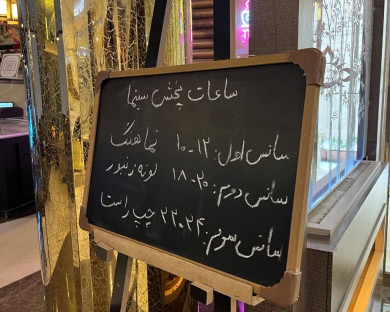 ساعات پخش سینما
سانس اول: ۱۲-۱۰ نماهنگ
سانس دوم: ۲۰-۱۸ لونه زنبور
سانس سوم: ۲۴-۲۲ چپ راست